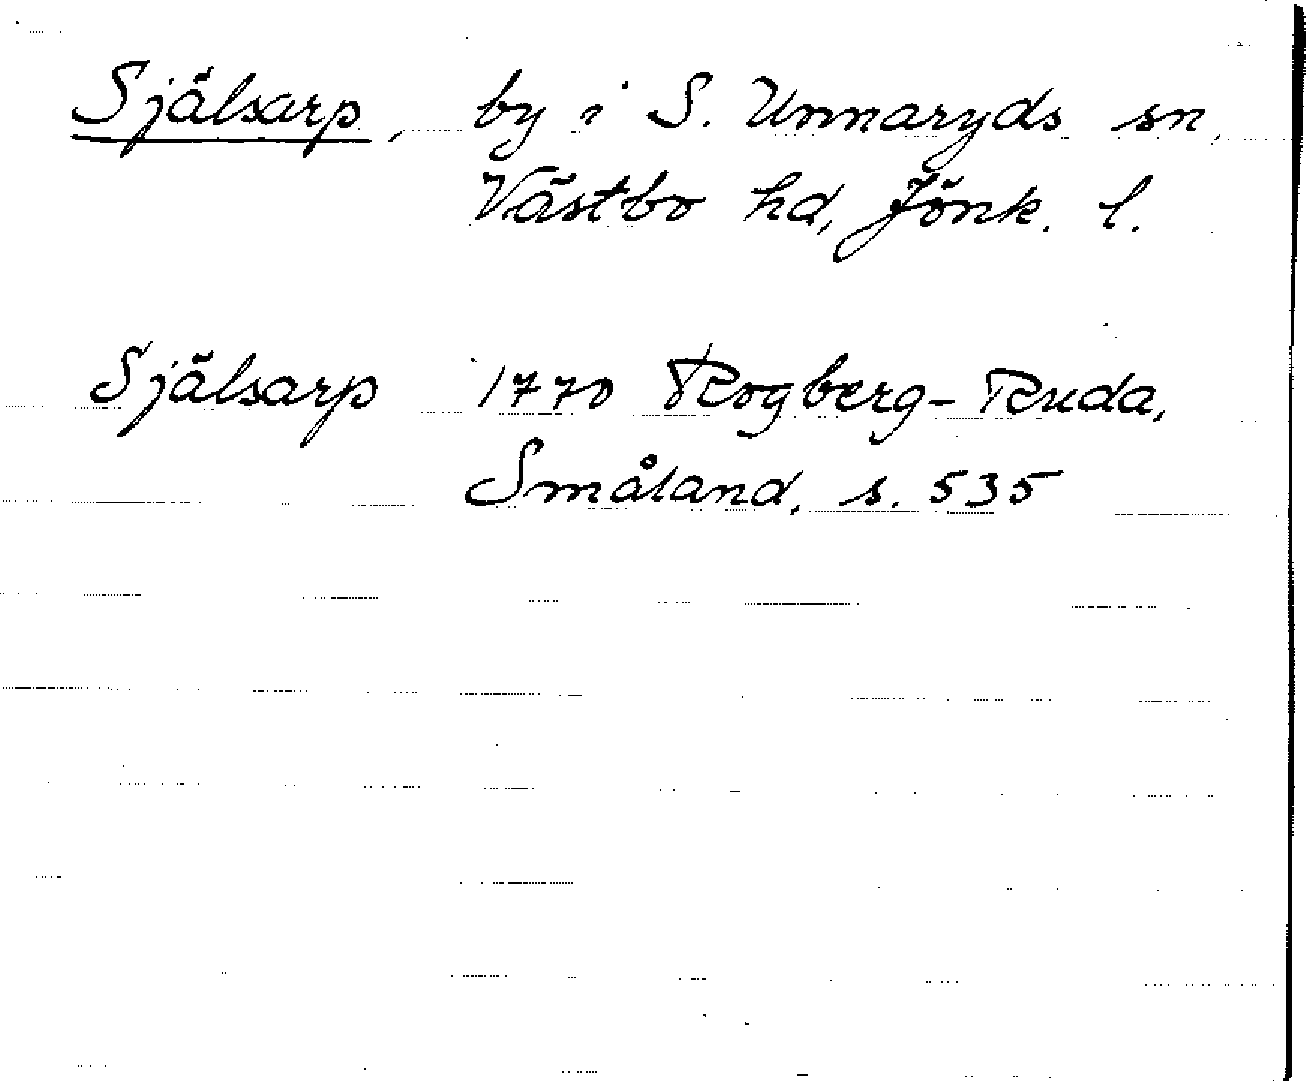 Själsarp, by i S. Unnaryds sn,
Västbo hd, Jönk. l.
Själsarp 1770 Rogberg-Ruda,
Småland, s. 535